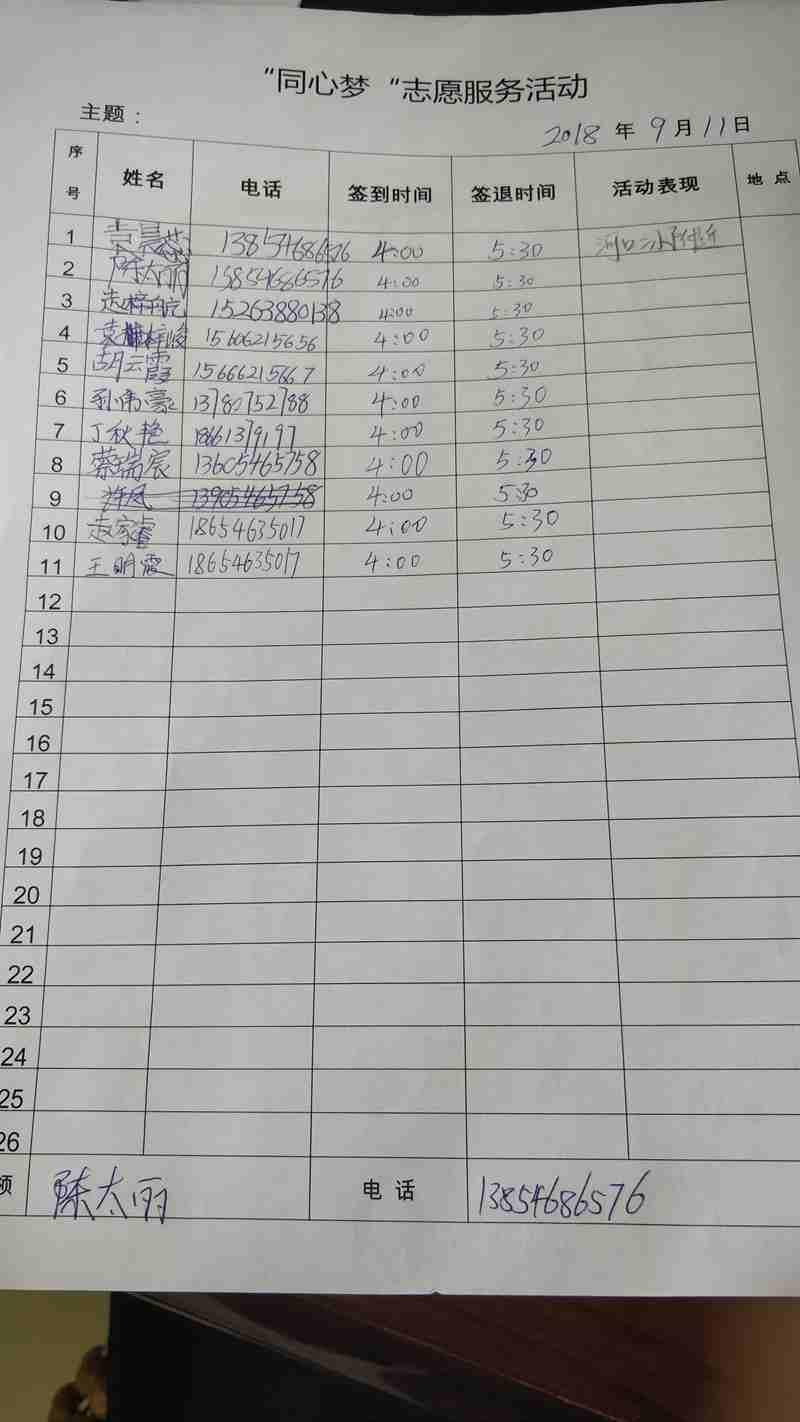 “同心梦“志愿服务活动
主题：
2018 年 9 月 11 日
序号 姓名 电话 签到时间 签退时间 活动表现 地点
1 13854686576 4:00 5:30
2 陈太丽 13854686576 4:00 5:30
3 15263880138 4:00 5:30
4 15606215656 4:00 5:30
5 胡云霞 15666215667 4:00 5:30
6 孙伟豪 13780752788 4:00 5:30
7 丁秋艳 4:00 5:30
8 蔡瑞宸 13605465758 4:00 5:30
9 许凤 13905465758 4:00 5:30
10 赵家睿 18654635017 4:00 5:30
11 王明霞 18654635017 4:00 5:30
12
13
14
15
16
17
18
19
20
21
22
23
24
25
26
陈太丽 电话 13854686576